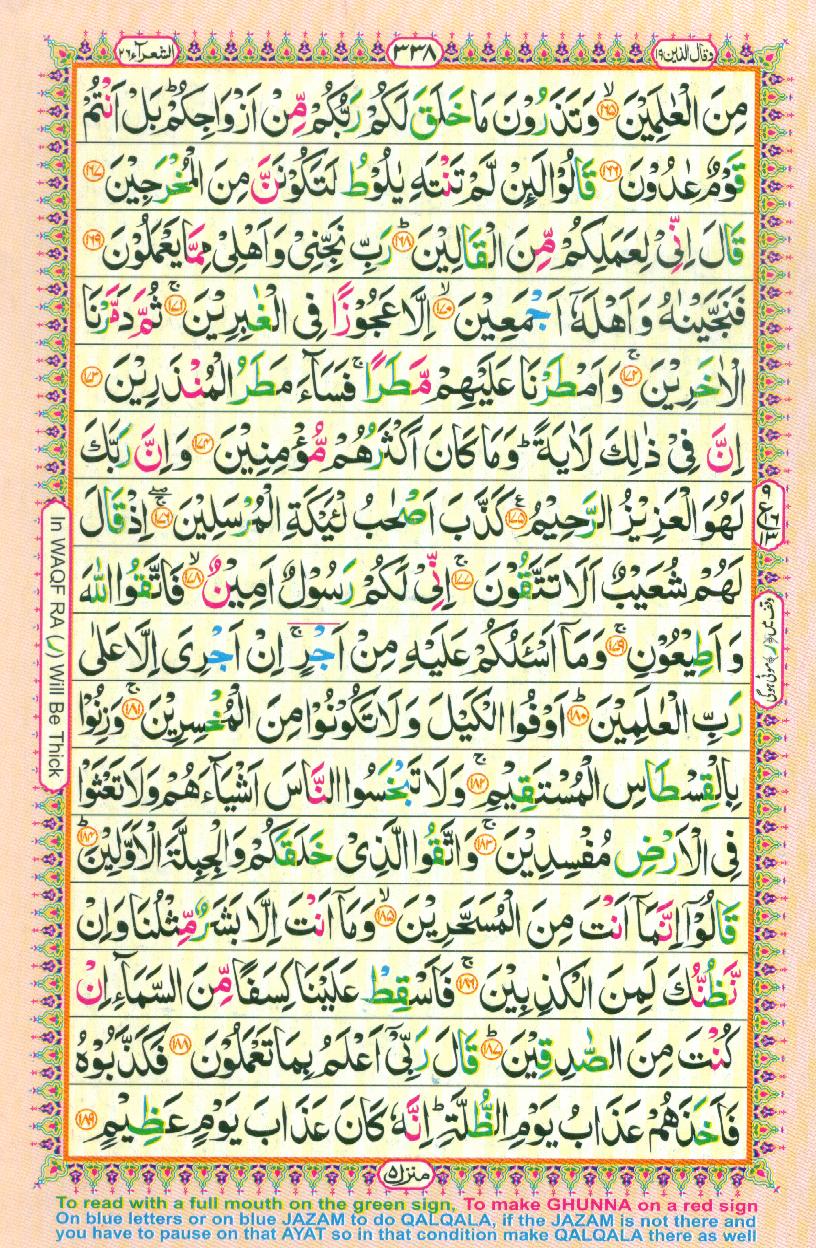 وقال الذین ۱۹
۳۳۸
الشعرآء ۲۶
مِنَ الْعٰلَمِیْنَ ﴿۱۶۵﴾ۙ وَتَذَرُوْنَ مَا خَلَقَ لَكُمْ رَبُّكُمْ مِّنْ اَزْوَاجِكُمْ ؕ بَلْ اَنْتُمْ
قَوْمٌ عٰدُوْنَ ﴿۱۶۶﴾ قَالُوْا لَىِٕنْ لَّمْ تَنْتَهِ یٰلُوْطُ لَتَكُوْنَنَّ مِنَ الْمُخْرَجِیْنَ ﴿۱۶۷﴾
قَالَ اِنِّیْ لِعَمَلِكُمْ مِّنَ الْقَالِیْنَ ﴿۱۶۸﴾ؕ رَبِّ نَجِّنِیْ وَاَهْلِیْ مِمَّا یَعْمَلُوْنَ ﴿۱۶۹﴾
فَنَجَّیْنٰهُ وَاَهْلَهٗۤ اَجْمَعِیْنَ ﴿۱۷۰﴾ۙ اِلَّا عَجُوْزًا فِی الْغٰبِرِیْنَ ﴿۱۷۱﴾ۚ ثُمَّ دَمَّرْنَا
الْاٰخَرِیْنَ ﴿۱۷۲﴾ۚ وَاَمْطَرْنَا عَلَیْهِمْ مَّطَرًا ۚ فَسَآءَ مَطَرُ الْمُنْذَرِیْنَ ﴿۱۷۳﴾
اِنَّ فِیْ ذٰلِكَ لَاٰیَةً ؕ وَمَا كَانَ اَكْثَرُهُمْ مُّؤْمِنِیْنَ ﴿۱۷۴﴾ وَاِنَّ رَبَّكَ
لَهُوَ الْعَزِیْزُ الرَّحِیْمُ ﴿۱۷۵﴾ كَذَّبَ اَصْحٰبُ لْـَٔیْكَةِ الْمُرْسَلِیْنَ ﴿۱۷۶﴾ۚۖ اِذْ قَالَ
لَهُمْ شُعَیْبٌ اَلَا تَتَّقُوْنَ ﴿۱۷۷﴾ۚ اِنِّیْ لَكُمْ رَسُوْلٌ اَمِیْنٌ ﴿۱۷۸﴾ۙ فَاتَّقُوا اللّٰهَ
وَاَطِیْعُوْنِ ﴿۱۷۹﴾ۚ وَمَاۤ اَسْـَٔلُكُمْ عَلَیْهِ مِنْ اَجْرٍ ۚ اِنْ اَجْرِیَ اِلَّا عَلٰی
رَبِّ الْعٰلَمِیْنَ ﴿۱۸۰﴾ؕ اَوْفُوا الْكَیْلَ وَلَا تَكُوْنُوْا مِنَ الْمُخْسِرِیْنَ ﴿۱۸۱﴾ۚ وَزِنُوْا
بِالْقِسْطَاسِ الْمُسْتَقِیْمِ ﴿۱۸۲﴾ۚ وَلَا تَبْخَسُوا النَّاسَ اَشْیَآءَهُمْ وَلَا تَعْثَوْا
فِی الْاَرْضِ مُفْسِدِیْنَ ﴿۱۸۳﴾ۚ وَاتَّقُوا الَّذِیْ خَلَقَكُمْ وَالْجِبِلَّةَ الْاَوَّلِیْنَ ﴿۱۸۴﴾ؕ
قَالُوْۤا اِنَّمَاۤ اَنْتَ مِنَ الْمُسَحَّرِیْنَ ﴿۱۸۵﴾ۙ وَمَاۤ اَنْتَ اِلَّا بَشَرٌ مِّثْلُنَا وَاِنْ
نَّظُنُّكَ لَمِنَ الْكٰذِبِیْنَ ﴿۱۸۶﴾ۚ فَاَسْقِطْ عَلَیْنَا كِسَفًا مِّنَ السَّمَآءِ اِنْ
كُنْتَ مِنَ الصّٰدِقِیْنَ ﴿۱۸۷﴾ؕ قَالَ رَبِّیْۤ اَعْلَمُ بِمَا تَعْمَلُوْنَ ﴿۱۸۸﴾ فَكَذَّبُوْهُ
فَاَخَذَهُمْ عَذَابُ یَوْمِ الظُّلَّةِ ؕ اِنَّهٗ كَانَ عَذَابَ یَوْمٍ عَظِیْمٍ ﴿۱۸۹﴾
ع
In WAQF RA (ر) Will Be Thick
منزل ۵
To read with a full mouth on the green sign, To make GHUNNA on a red sign
On blue letters or on blue JAZAM to do QALQALA, if the JAZAM is not there and
you have to pause on that AYAT so in that condition make QALQALA there as well